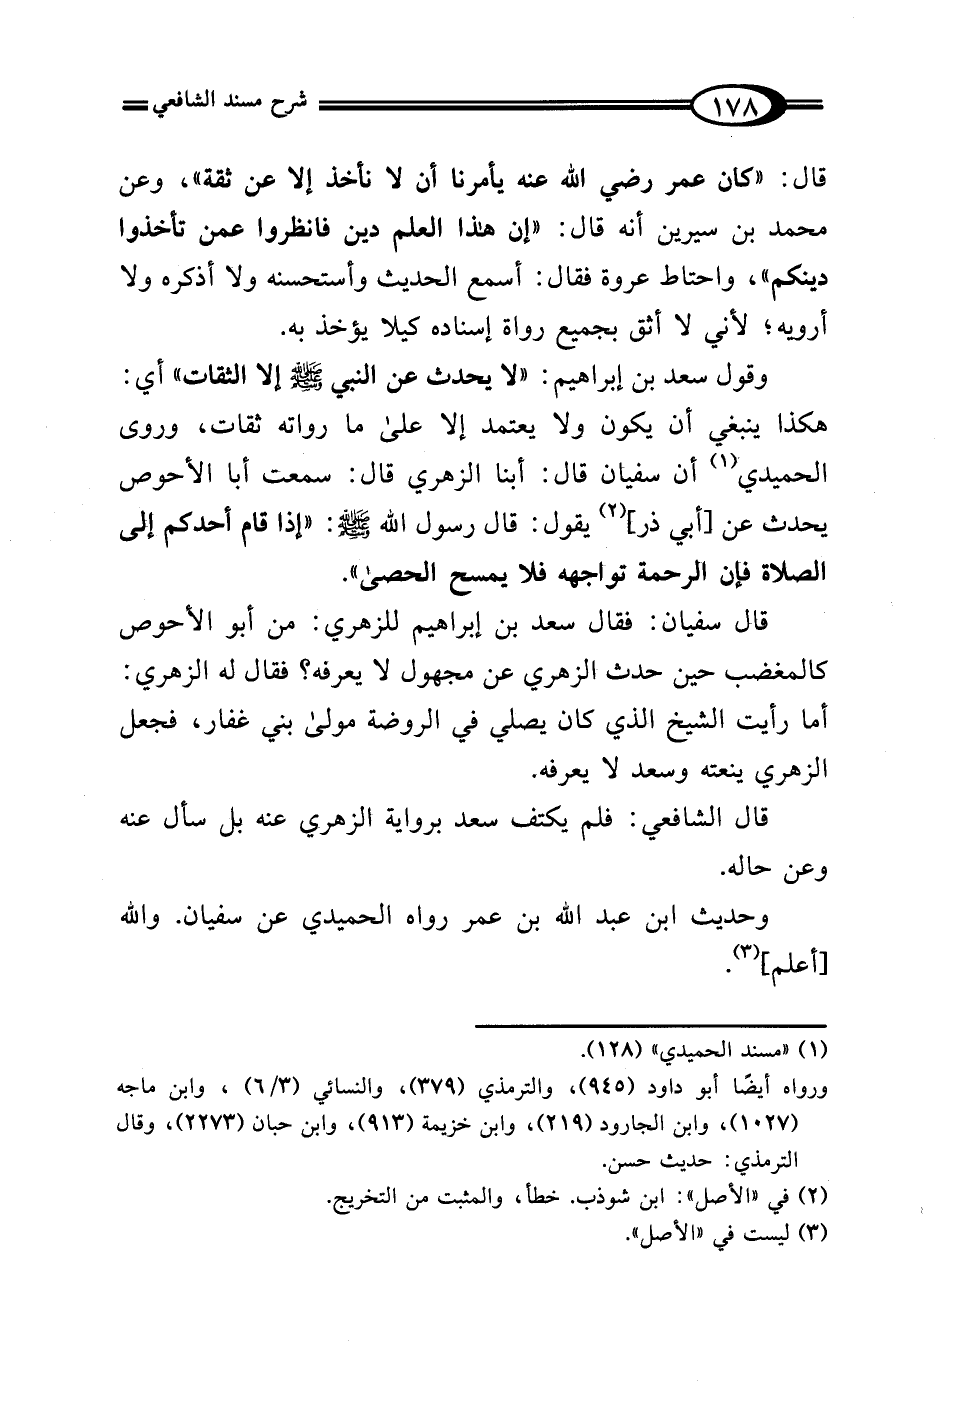 ١٧٨ شرح مسند الشافعي
قال: «كان عمر رضي الله عنه يأمرنا أن لا نأخذ إلا عن ثقة»، وعن
محمد بن سيرين أنه قال: «إن هذا العلم دين فانظروا عمن تأخذوا
دينكم»، واحتاط عروة فقال: أسمع الحديث وأستحسنه ولا أذكره ولا
أرويه؛ لأني لا أثق بجميع رواة إسناده كيلا يؤخذ به.
وقول سعد بن إبراهيم: «لا يحدث عن النبي ﷺ إلا الثقات» أي:
هكذا ينبغي أن يكون ولا يعتمد إلا علىٰ ما رواته ثقات، وروى
الحميدي(١) أن سفيان قال: أبنا الزهري قال: سمعت أبا الأحوص
يحدث عن [أبي ذر](٢) يقول: قال رسول الله ﷺ: «إذا قام أحدكم إلى
الصلاة فإن الرحمة تواجهه فلا يمسح الحصىٰ».
قال سفيان: فقال سعد بن إبراهيم للزهري: من أبو الأحوص
كالمغضب حين حدث الزهري عن مجهول لا يعرفه؟ فقال له الزهري:
أما رأيت الشيخ الذي كان يصلي في الروضة مولىٰ بني غفار، فجعل
الزهري ينعته وسعد لا يعرفه.
قال الشافعي: فلم يكتف سعد برواية الزهري عنه بل سأل عنه
وعن حاله.
وحديث ابن عبد الله بن عمر رواه الحميدي عن سفيان. والله
[أعلم](٣).
(١) «مسند الحميدي» (١٢٨).
ورواه أيضًا أبو داود (٩٤٥)، والترمذي (٣٧٩)، والنسائي (٦/٣) ، وابن ماجه
(١٠٢٧)، وابن الجارود (٢١٩)، وابن خزيمة (٩١٣)، وابن حبان (٢٢٧٣)، وقال
الترمذي: حديث حسن.
(٢) في «الأصل»: ابن شوذب. خطأ، والمثبت من التخريج.
(٣) ليست في «الأصل».